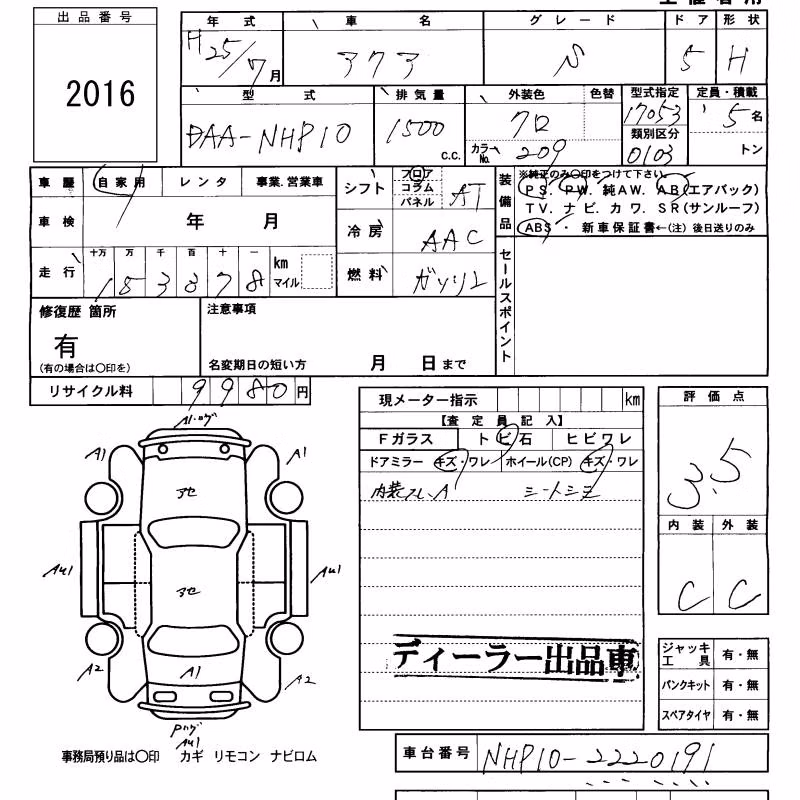 出品番号
2016
年式 車名 グレード ドア 形状
H25/7月 アクア S 5 H
型式 排気量 外装色 色替 型式指定 定員・積載
DAA-NHP10 1500 c.c. クロ 17053 5名
カラーNo. 209 類別区分 0103 トン
車歴 自家用 レンタ 事業.営業車
シフト フロア コラム パネル AT
装備品 ※純正のみ〇印をつけて下さい。
PS. PW. 純AW. AB(エアバック)
TV. ナビ. カワ. SR(サンルーフ)
ABS・ 新車保証書←(注) 後日送りのみ
車検 年 月
冷房 AAC
走行 十万 万 千 百 十 一
183378 km マイル
燃料 ガソリン
セールスポイント
修復歴 箇所
有
(有の場合は〇印を)
注意事項
名変期日の短い方 月 日まで
リサイクル料 9980円
現メーター指示 km
【査定員記入】
Fガラス トビ石 ヒビワレ
ドアミラー キズ・ワレ ホイール(CP) キズ・ワレ
内装 A
ディーラー出品車
評価点
3.5
内装 外装
C C
A1
A1
A1
アセ
AU1
アセ
AU1
A2
A1
A2
AU1
ジャッキ工具 有・無
パンクキット 有・無
スペアタイヤ 有・無
事務局預り品は〇印 カギ リモコン ナビロム
車台番号 NHP10-2220191